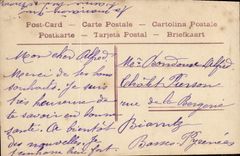 Post-Card — Carte Postale — Cartolina Postale
Postkarte — Tarjeta Postal — Briefkaart
Mon cher Alfred
Merci de tes bons
souhaits. Je suis
très heureuse de
le savoir en bonne
santé. A bientôt
des nouvelles. Je
t'embrasse bien fort.
Alfred
Châlet Pierson
rue de la
Biarritz
Basses-Pyrénées